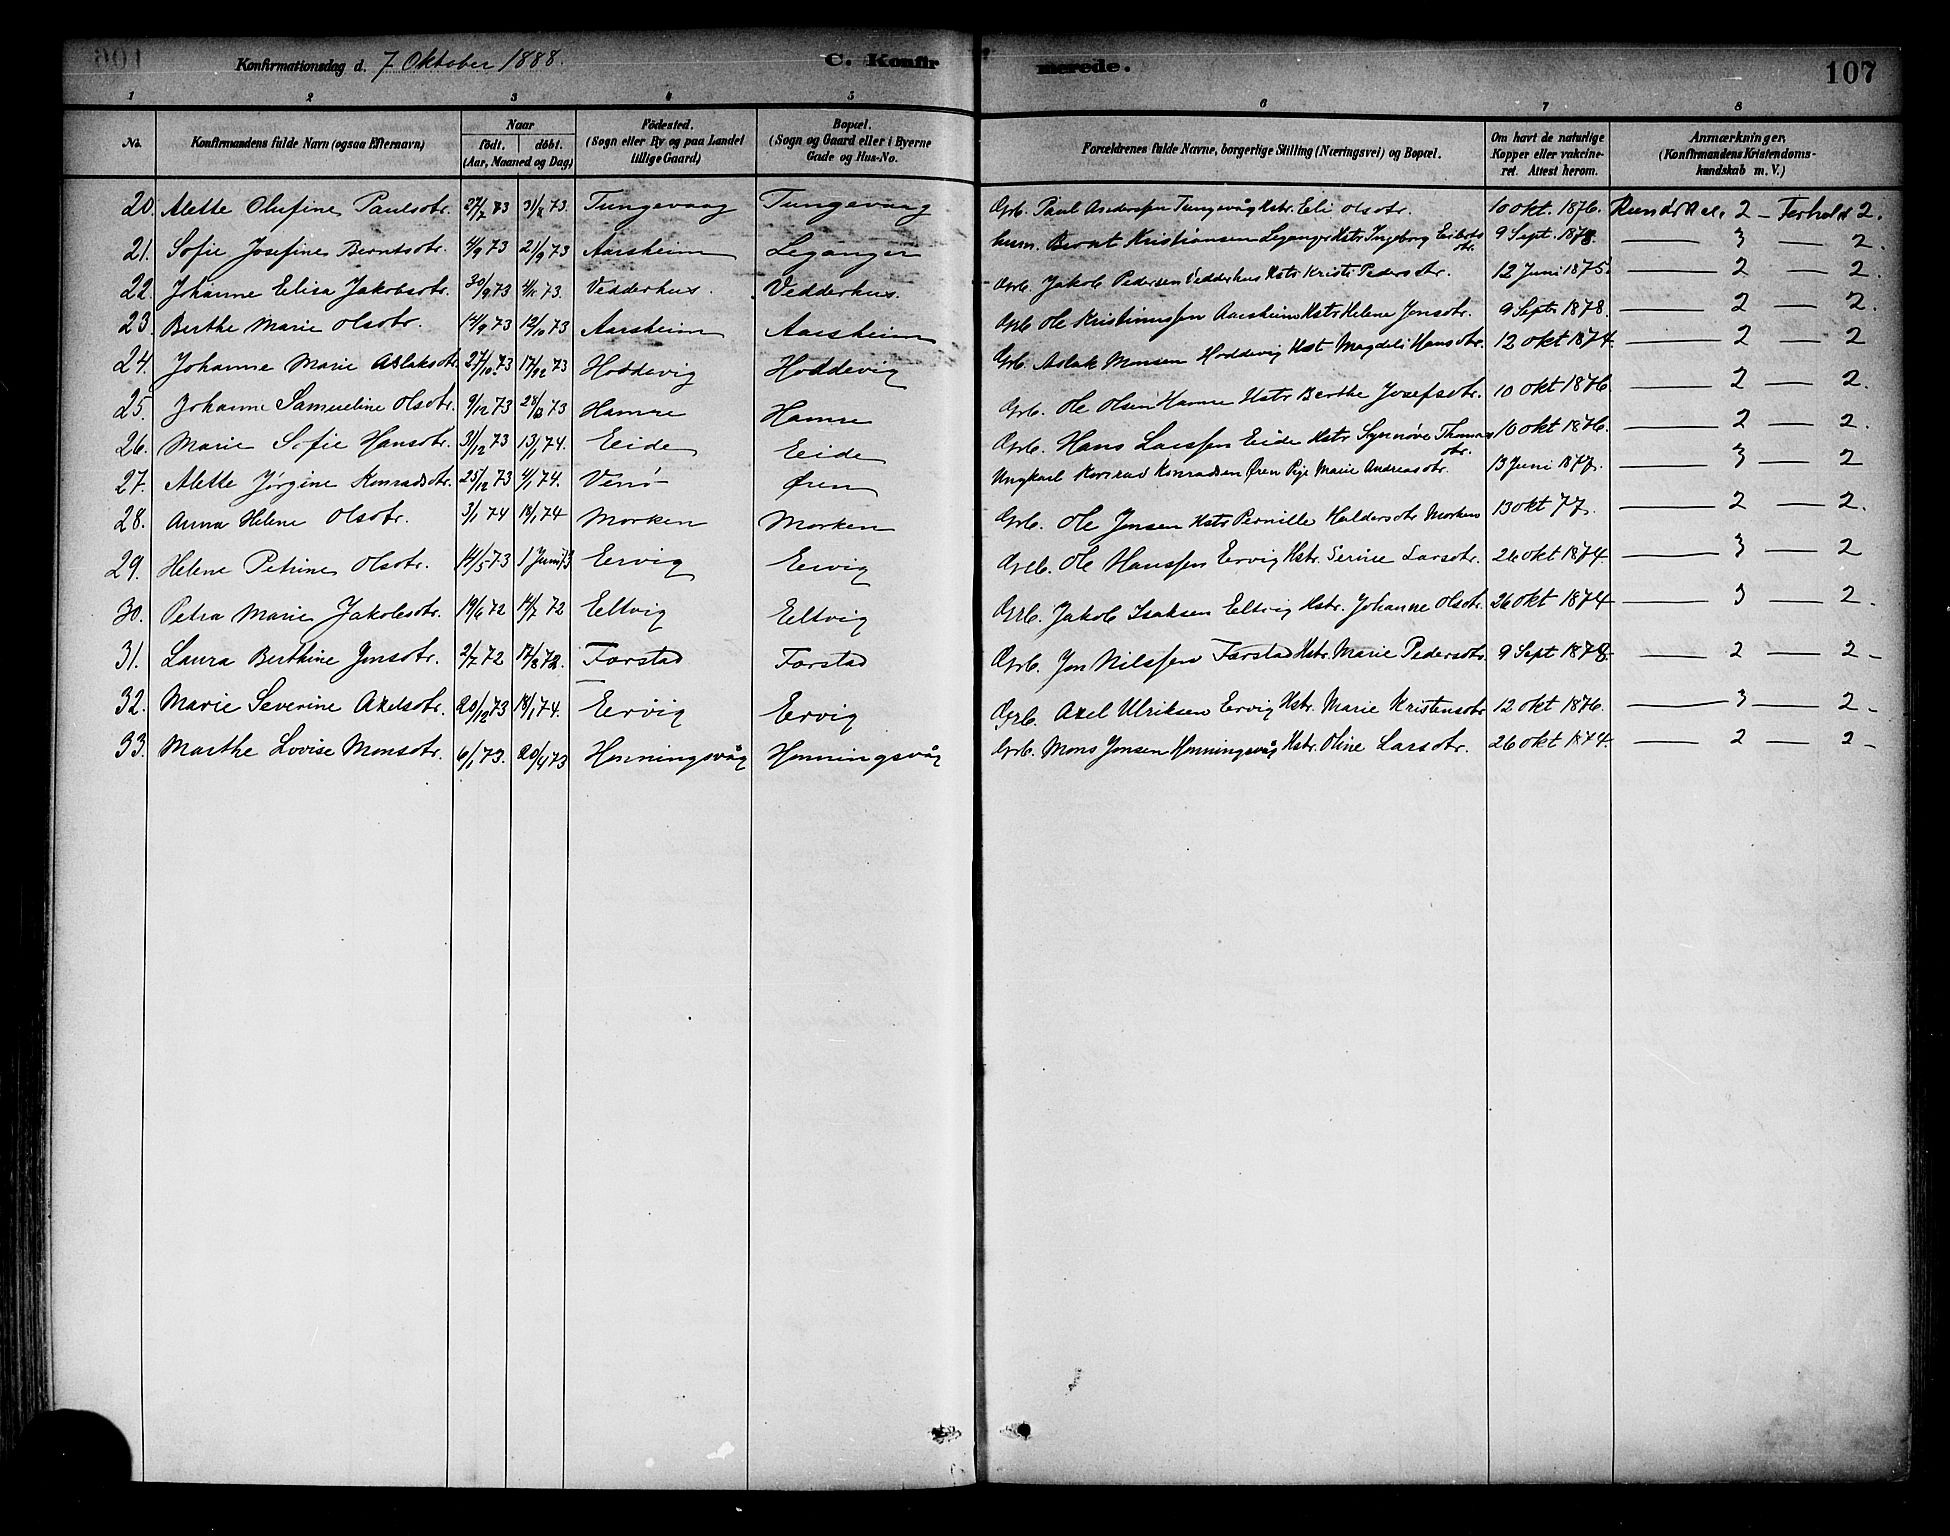 Konfirmationsdag d. 7 Oktober 1888. C. Konfirmerede. 107
1 2 3 4 5 6 7 8
No. Konfirmandens fulde Navn (ogsaa Efternavn) Naar födt. döbt. (Aar, Maaned og Dag) Födested. (Sogn eller By og paa Landet tillige Gaard) Bopæl. (Sogn og Gaard eller i Byerne Gade og Hus-No. Forældrenes fulde Navne, borgerlige Stilling (Næringsvei) og Bopæl. Om havt de naturlige Kopper eller vakcineret. Attest herom. Anmærkninger, (Konfirmandens Kristendomskundskab m. V.)
20. Alette Olufine Paulsdtr. 27/7 73 31/8 73. Tungevaag Tungevaag Grb. Paul Andersen Tungevåg Hstr. Eli Olsdtr. 10 okt. 1876. Kundskab. 2 - Forhold 2.
21. Sofie Josefine Berntsdtr. 4/9 73 21/9 73 Aarsheim Leganger husm. Bernt Kristiansen Leganger Hstr Ingeborg dtr. 9 Sept. 1878. — 3 — 2.
22. Johanne Elisa Jakobsdtr. 30/9 73 4/11 73. Vedderhus. Vedderhus. Grb. Jakob Pedersen Vedderhus Hstr Kristi Pedersdtr. 12 Juni 1875 — 2 — 2.
23. Berthe Marie Olsdtr. 14/9 73 12/10 73 Aarsheim Aarsheim Grb. Ole Kristianssen Aarsheim Hstr Helene Jonsdtr. 9 Septr 1878. — 2 — 2.
24. Johanne Marie Aslaksdtr. 27/10. 73 17/12 73 Hoddevig Hoddevig Grb. Aslak Monsen Hoddevig Hst Magdeli Hansdtr. 12 okt 1874. — 2 — 2
25. Johanne Samueline Olsdtr. 9/12 73 28/12 73 Hamre Hamre Grb. Ole Olsen Hamre Hstr Berthe Josefsdtr. 10 okt 1876 — 2 — 2.
26. Marie Sofie Hansdtr. 31/12 73 13/1 74. Eide Eide Grb. Hans Larssen Eide Hstr Synnøve Thomasdtr. 10 okt 1876. — 2 — 2.
27. Alette Jørgine Konradsdtr. 25/12 73 4/1 74. Øren Ungkarl Konrad Konradsen Øren Pige Marie Andreasdtr. 13 Juni 1877. — 3 — 2
28. Anna Helene Olsdtr. 3/1 74 18/1 74 Morken Morken Grb. Ole Jonsen Hstr Pernille Haldorsdtr Morken 13 okt 77. — 2 — 2.
29. Helene Petrine Olsdtr. 14/5 73 1 Juni 73 Ervig Ervig Grb. Ole Hanssen Ervig Hstr. Serine Larsdtr. 26 okt 1874. — 3 — 2
30. Petra Marie Jakobsdtr. 19/6 72 14/7 72 Eltvig Eltvig Grb. Jakob Isaksen Eltvig Hstr. Johanne Olsdtr. 26 okt 1874 — 3 — 2.
31. Laura Berthine Jonsdtr. 2/7 72 17/8 72. Farstad Farstad Grb. Jon Nilssen Farstad Hstr. Marie Pedersdtr. 9 Sept 1878. — 2 — 2 -
32. Marie Severine Axelsdtr. 20/12 73 18/1 74. Ervig Ervig Grb. Axel Ulriksen Ervig Hstr. Marie Kristensdtr 12 okt 1876. — 3 — 2 -
33. Marthe Lovise Monsdtr. 6/1 73. 20/4 73 Honningsvåg Honningsvåg Grb. Mons Jonsen Honningsvåg Hstr. Oline Larsdtr. 26 okt 1874. — 2 — 2 -